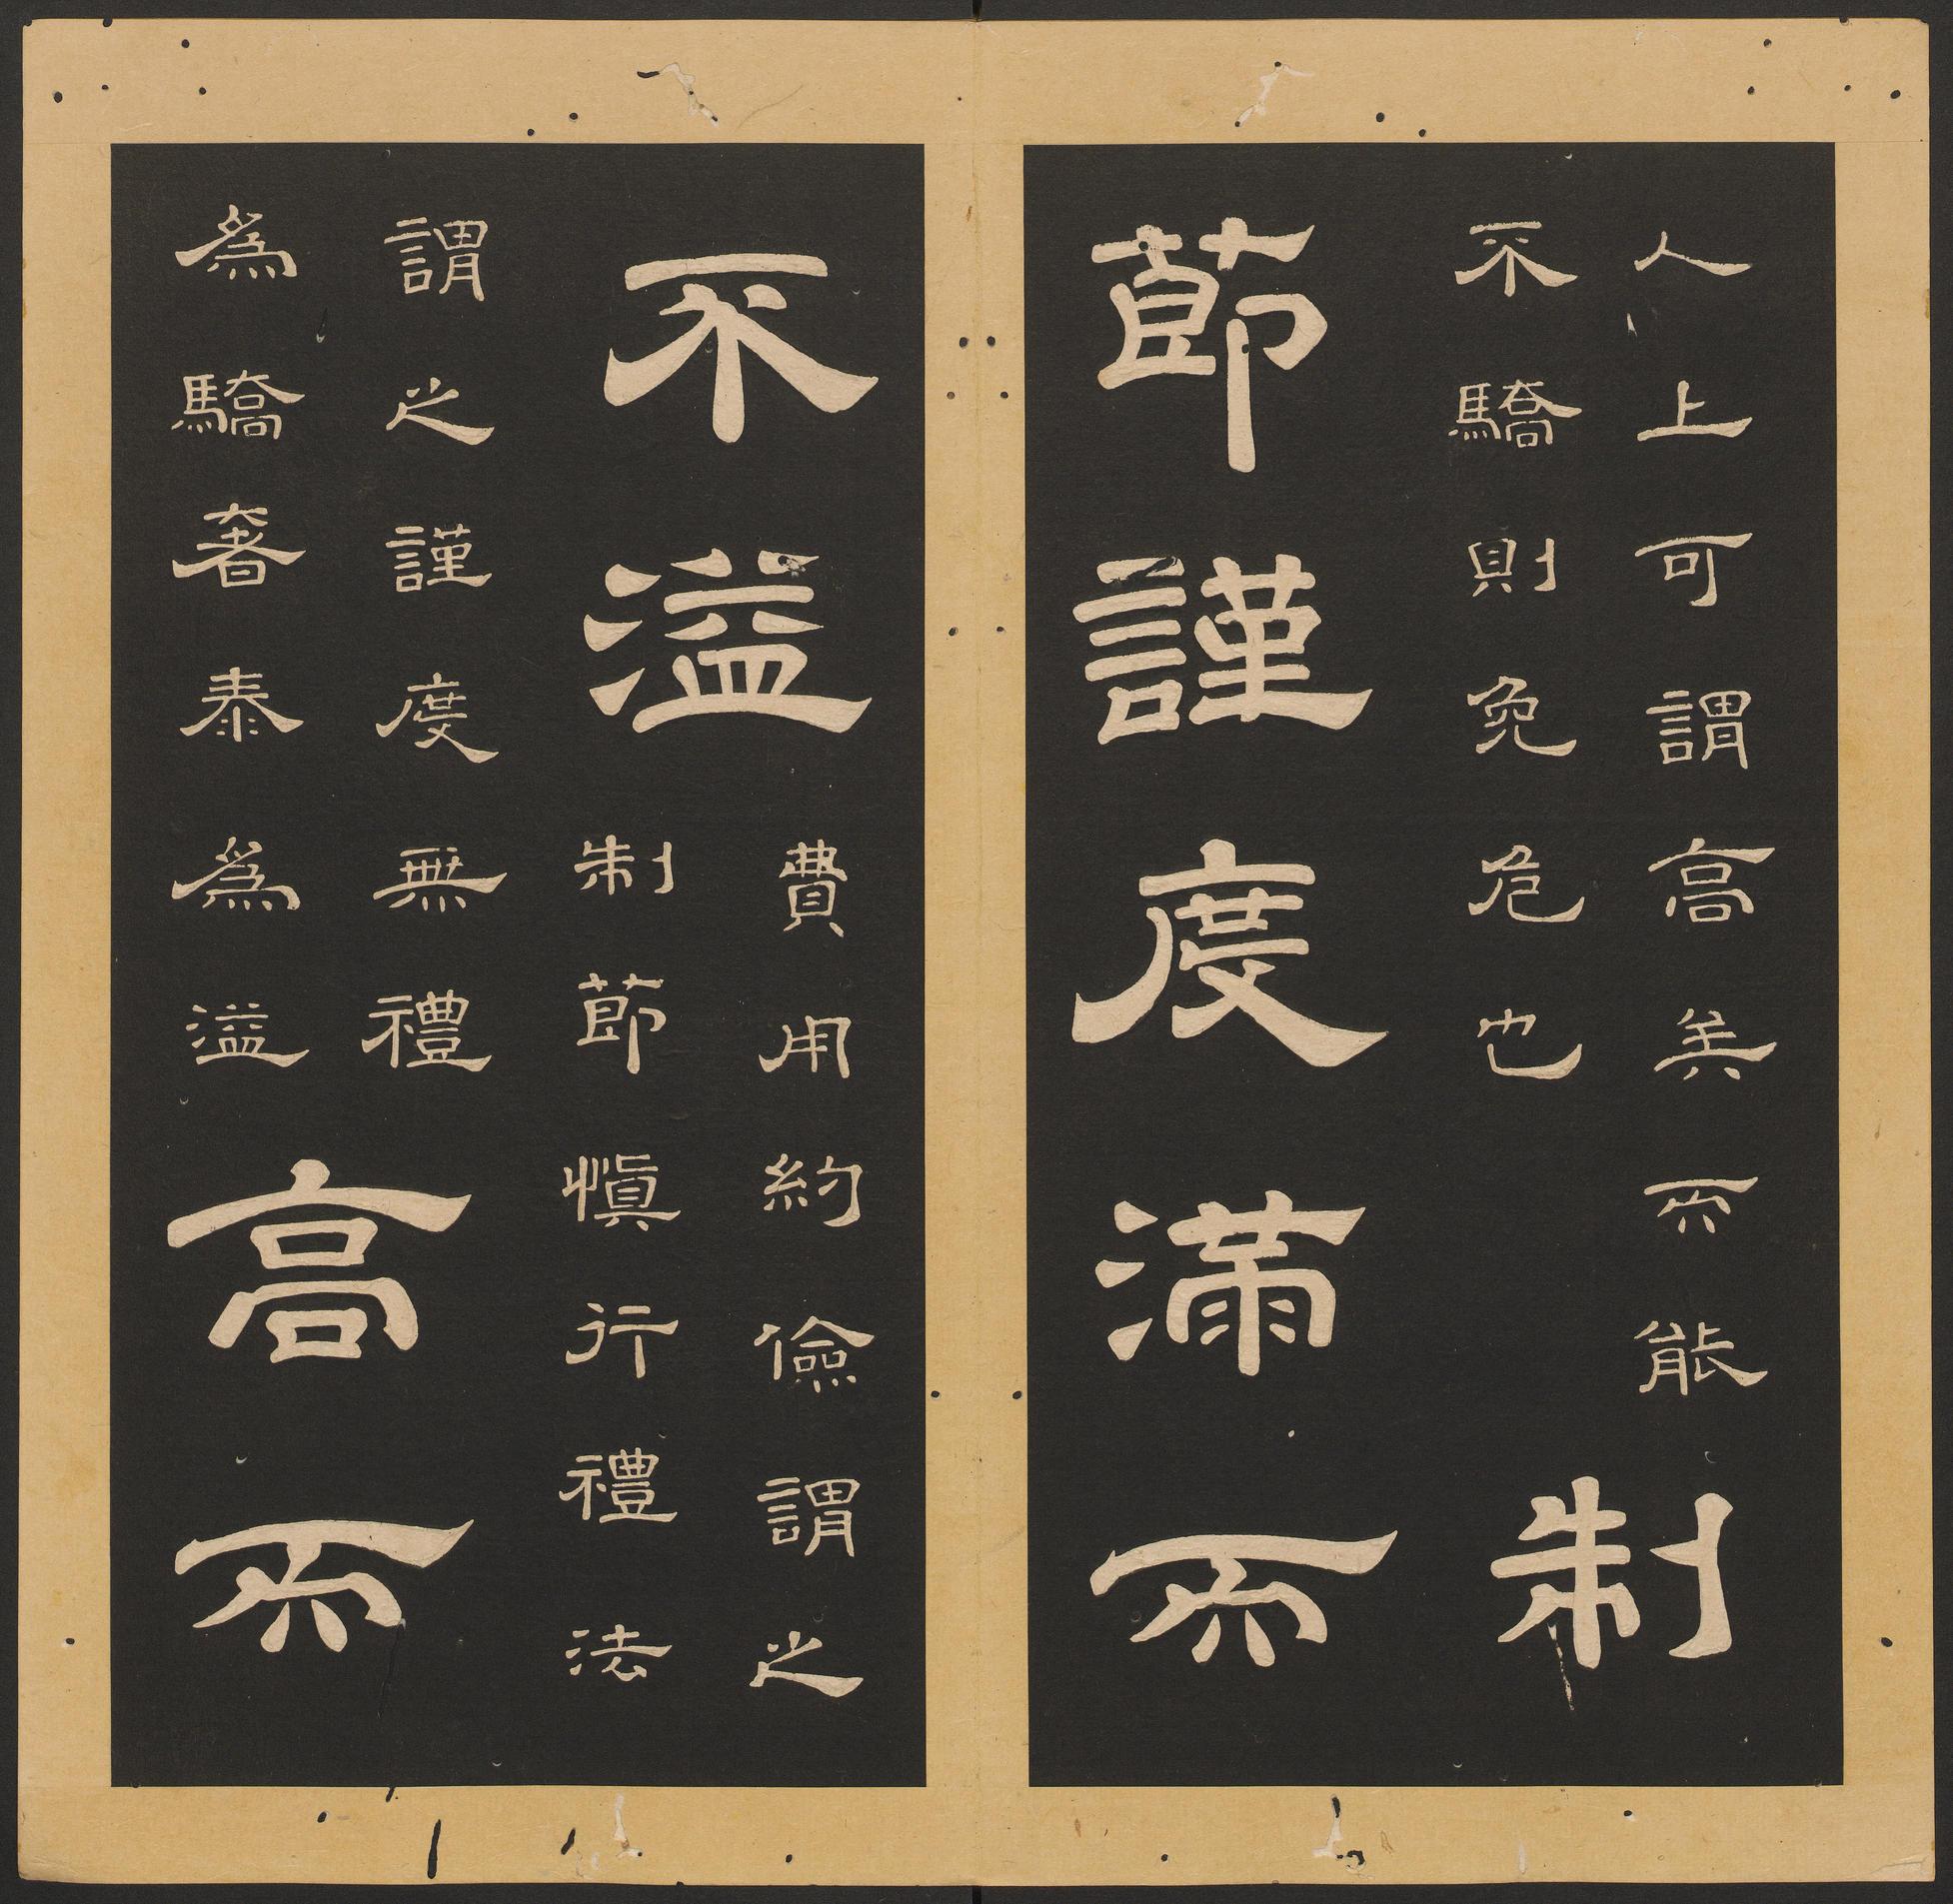 人上可謂高矣而能
不驕則免危也
制
節謹度滿而
不溢
費用約儉謂之
制節慎行禮法
謂之謹度無禮
為驕奢泰為溢
高而